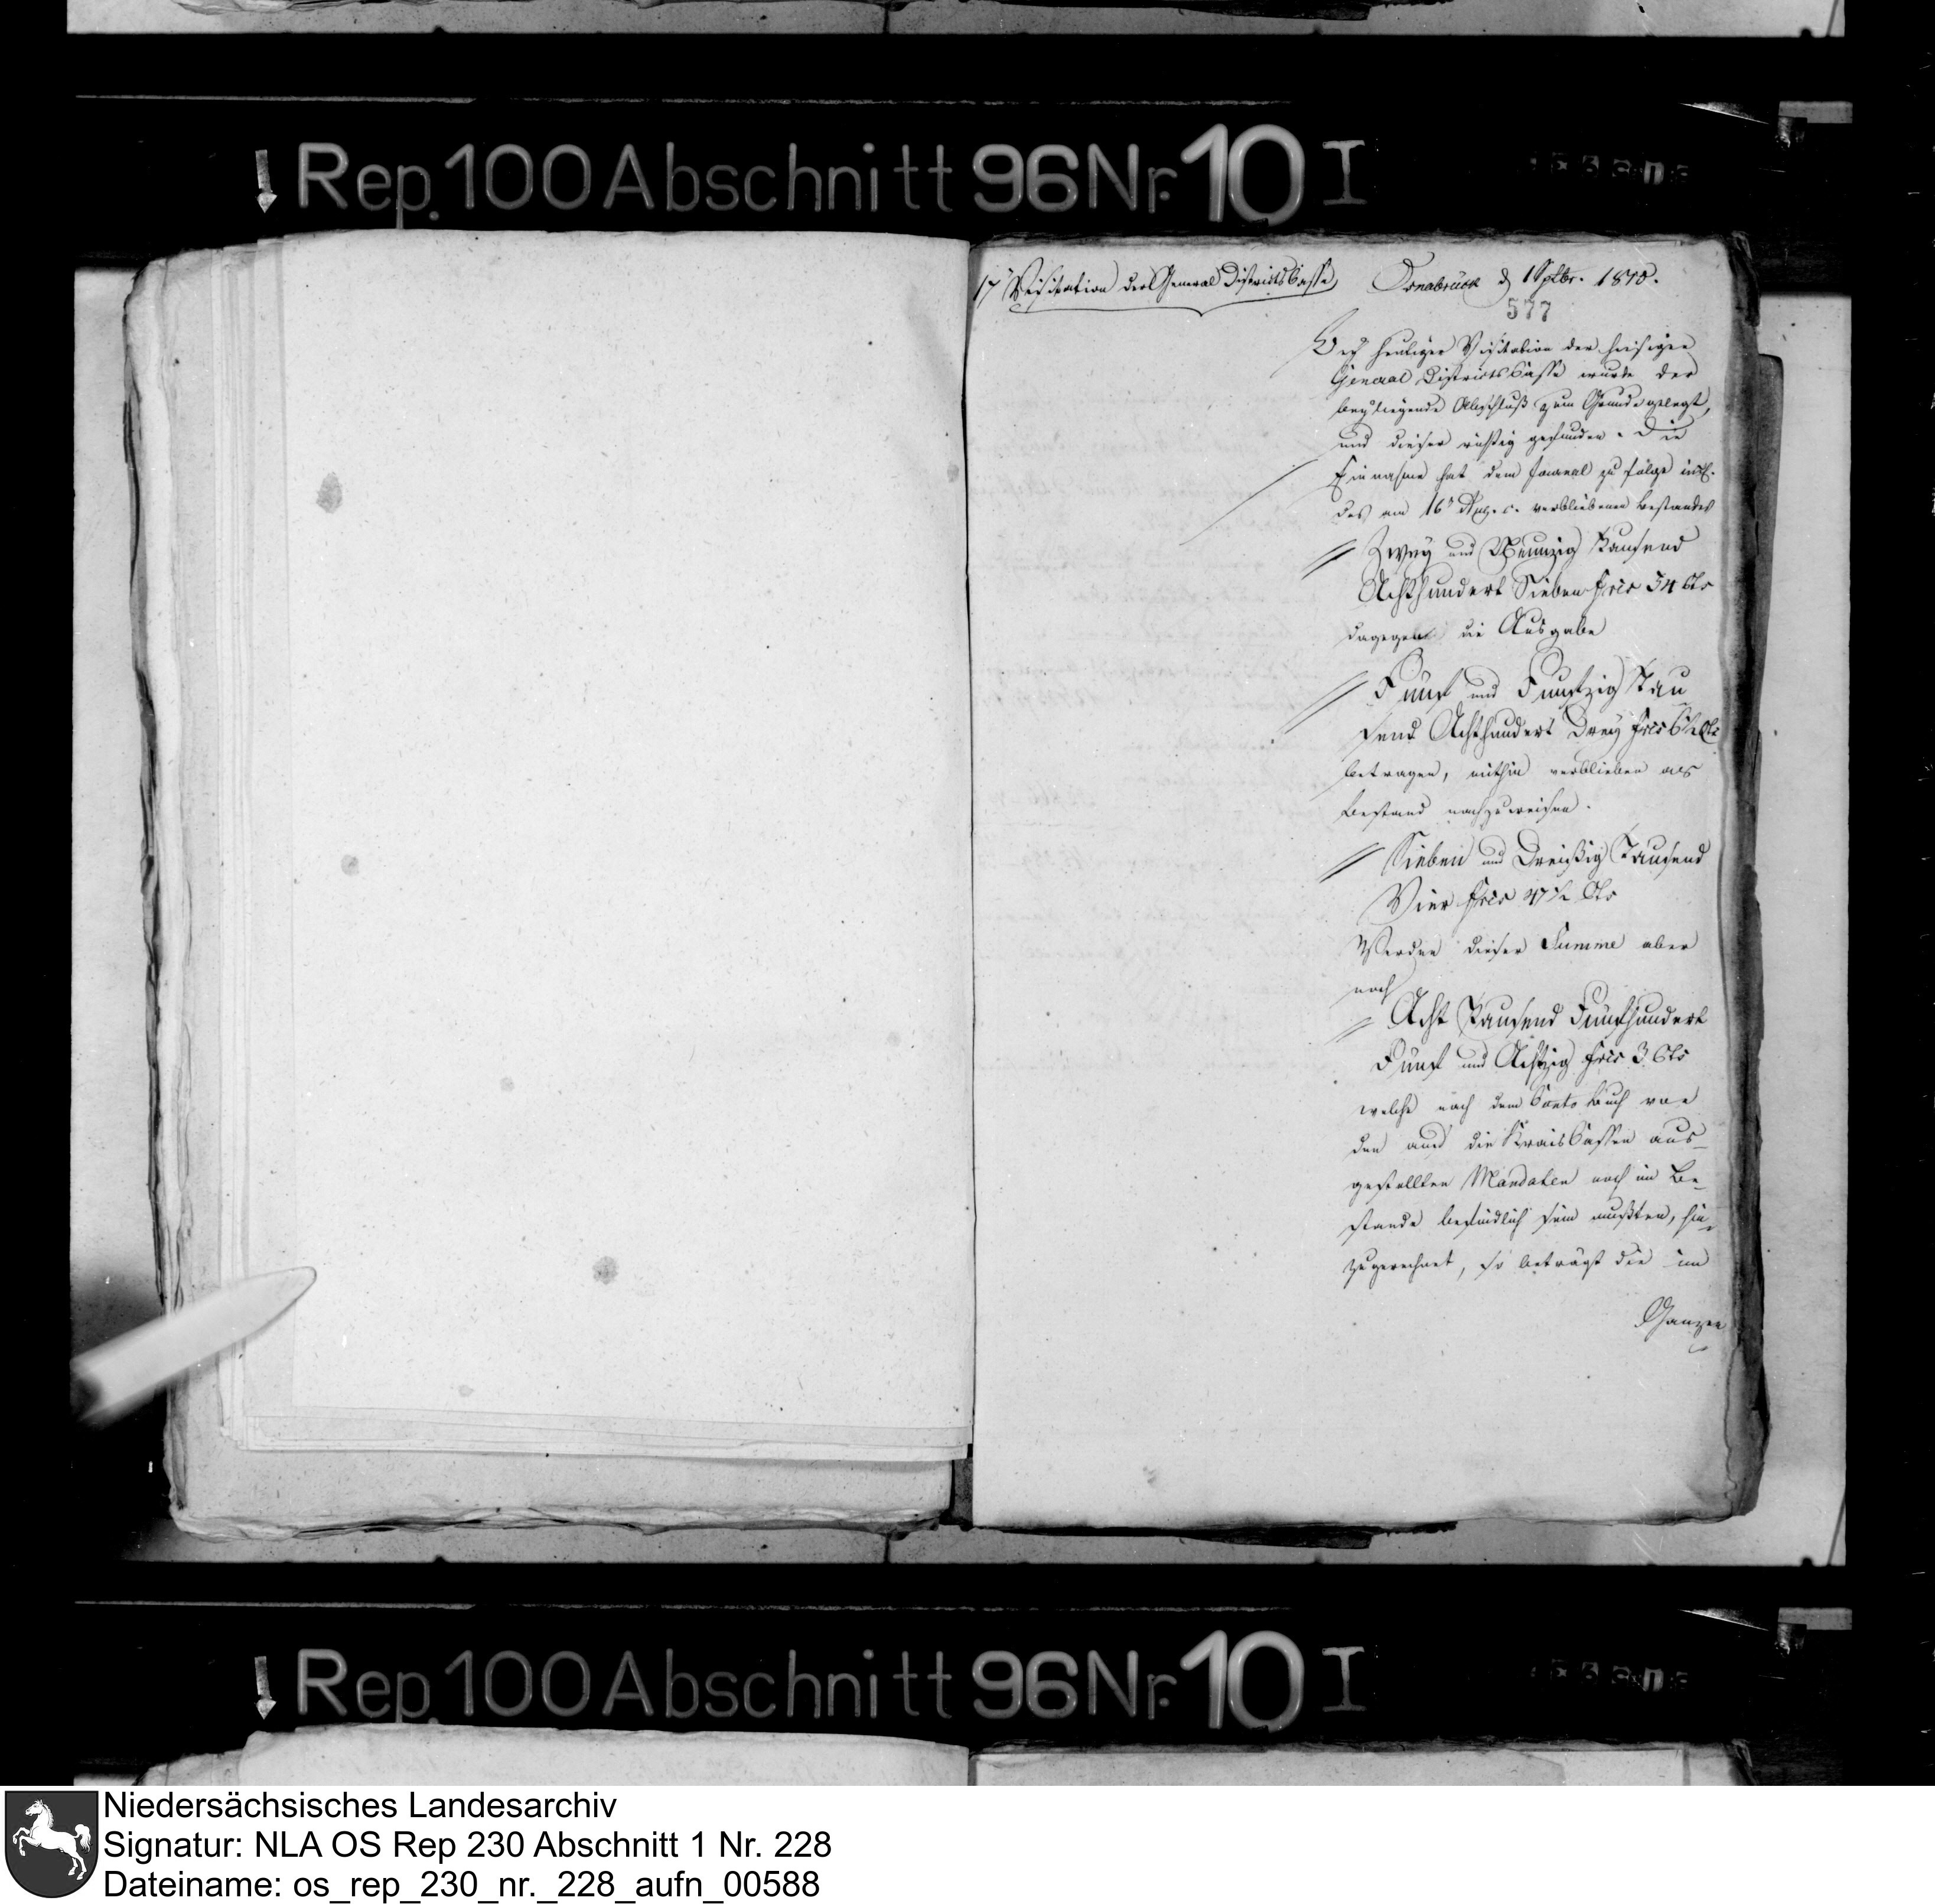 Rep. 100 Abschnitt 96 Nr. 10 I
17 Visitation der General Districts Casse
Osnabrück d 1 Septbr. 1810.
577
Bey heutiger Visitation der hiesigen
General Districts Casse wurde der
beyliegende Abschluß zum Grunde gelegt,
und dieser richtig gefunden. Die
Einnahme hat dem Journal zu folge incl.
des am 16 Aug. c. verbliebenen Bestandes
Zwey und Neunzig Tausend
Achthundert Sieben frcs 54 Cts
dagegen die Ausgabe
Fünf und Funfzig Tau
send Achthundert Drey frcs 6½ Cts
betragen, mithin verblieben als
Bestand nachzuweisen.
Sieben und Dreißig Tausend
Vier frcs 47½ Cts
Werden dieser Summe aber
noch
Acht Tausend Fünfhundert
Fünf und Achtzig frcs 3 Cts
welche nach dem Conto Buch von
den auf die Krais Cassen aus-
gestellten Mandaten noch im Be-
stande befindlich sein mußten, hin-
zugerechnet, so beträgt die im
Ganzen
Rep. 100 Abschnitt 96 Nr. 10 I
Niedersächsisches Landesarchiv
Signatur: NLA OS Rep 230 Abschnitt 1 Nr. 228
Dateiname: os_rep_230_nr._228_aufn_00588